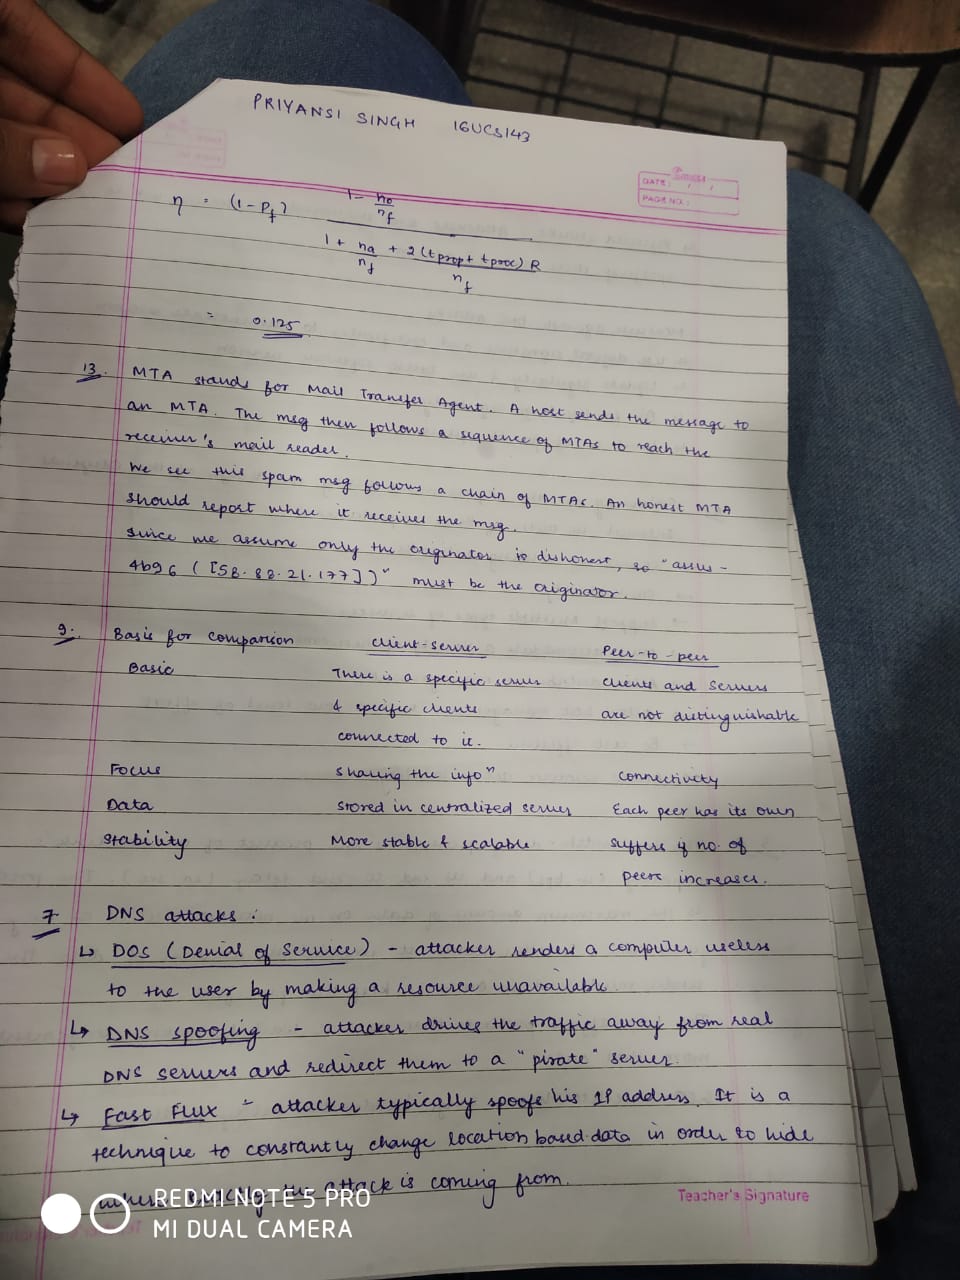 PRIYANSI SINGH 16UCS143
DATE: / /
PAGE NO.:
η = (1-Pf) 1 - no/nf
1 + na/nf + 2(tprop + tproc) R/nf
= 0.125
13. MTA stands for Mail Transfer Agent. A host sends the message to
an MTA. The msg then follows a sequence of MTAs to reach the
receiver's mail reader.
We see this spam msg follows a chain of MTAs. An honest MTA
should report where it receives the msg.
Since we assume only the originator is dishonest, so "asusu-
4b96 ([58.88.21.177])" must be the originator.
9. Basis for comparison client-server Peer-to-peer
Basic There is a specific server clients and servers
& specific clients are not distinguishable
connected to it.
Focus sharing the infoⁿ connectivity
Data stored in centralized server Each peer has its own
Stability More stable & scalable suffers if no. of
peers increases.
7 DNS attacks :
↳ DOS (Denial of Service) - attacker renders a computer useless
to the user by making a resource unavailable.
↳ DNS spoofing - attacker drives the traffic away from real
DNS servers and redirect them to a "pirate" server.
↳ Fast Flux - attacker typically spoofs his IP address. It is a
technique to constantly change location based data in order to hide
where exactly the attack is coming from.
Teacher's Signature
REDMI NOTE 5 PRO
MI DUAL CAMERA